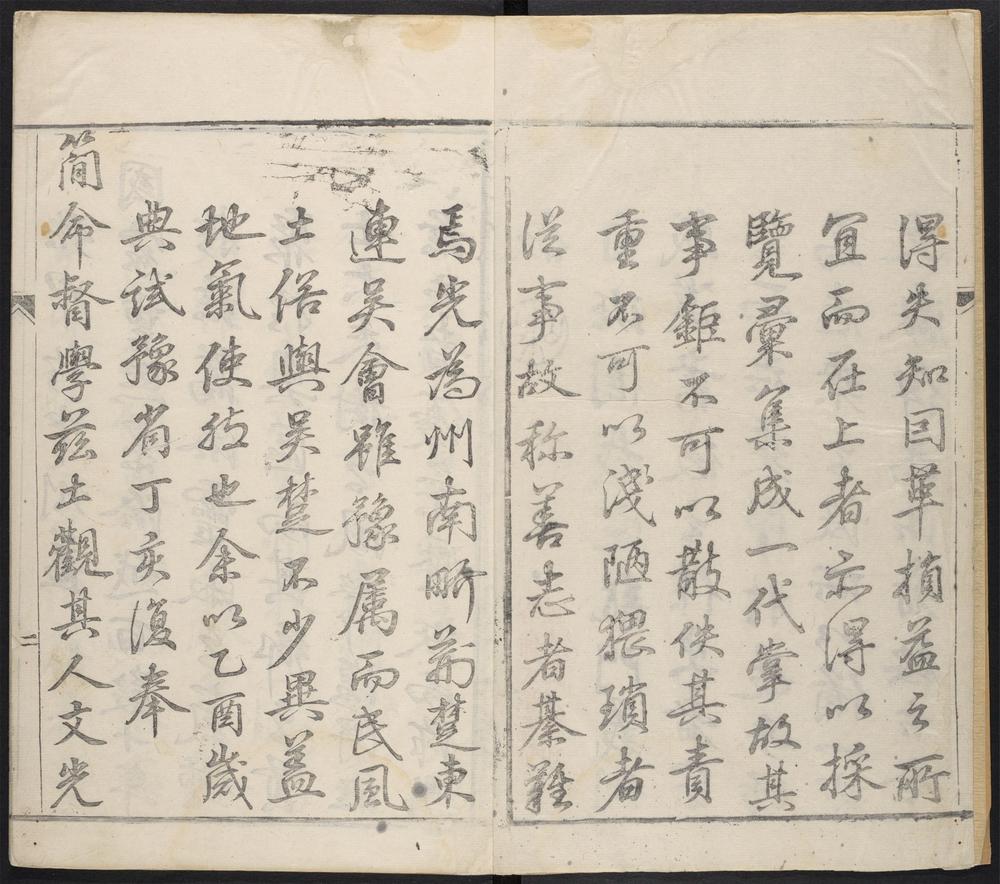 得失知因革損益之所
宜而在上者亦得以採
覽彙集成一代掌故其
事鉅不可以散佚其責
重不可以淺陋猥瑣者
從事故称善志者綦難
焉光為州南界荊楚東
連吴會雖豫属而民風
土俗與吴楚不少異盖
地氣使然也余以乙酉歲
典試豫省丁亥復奉
簡命督學兹土觀其人文光
二